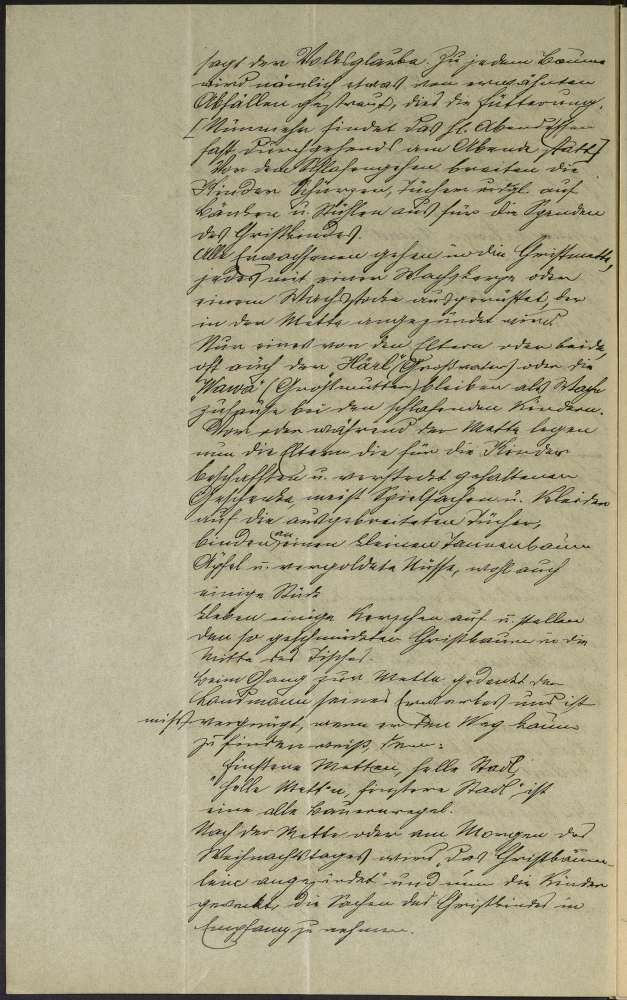 sagt der Volksglaube. Zu jedem Baume
wird nämlich etwas von erwähnten
Abfällen gestreut, dies die Fütterung.
[Nunmehr findet das hl. Abendessen
fast durchgehends am Abende statt]
Vor dem Schlafengehen breiten die
Kinder Schürzen, Tücher vrgl. auf
Bänken u. Stühlen aus für die Spenden
des Christkindes.
Alle Erwachsenen gehen in die Christmette,
jedes mit einer Wachskerze oder
einem Wachsstocke ausgerüstet, der
in der Mette angezündet wird.
Nur eines von den Eltern oder beide,
oft auch der "Härl" (Großvater) oder die
"Wawa" (Großmutter) bleiben als Wache
zuhause bei den schlafenden Kindern.
Vor oder während der Mette legen
nun die Eltern die für die Kinder
beschafften u. versteckt gehaltenen
Geschenke, meist Spielsachen u. Kleider
auf die ausgebreiteten Tücher,
binden an einen kleinen Tannenbaum
Äpfel u. vergoldete Nüsse, wohl auch
einige Stück
kleben einige Kerzchen auf u. stellen
den so geschmückten Christbaum in die
Mitte des Tisches.
Beim Gang zur Mette gedenkt der
Landmann seines Erwerbes und ist
vergnügt, wenn er den Weg kaum
zu finden weiß, denn:
Finstere Metten, helle Stadl,
"Helle Mett'n, finstere Stadl" ist
eine alte Bauernregel.
Nach der Mette oder am Morgen des
Weihnachtstages wird "das Christbäum-
lein angezündet" und nun die Kinder
geweckt, die Sachen des Christkindes in
Empfang zu nehmen.